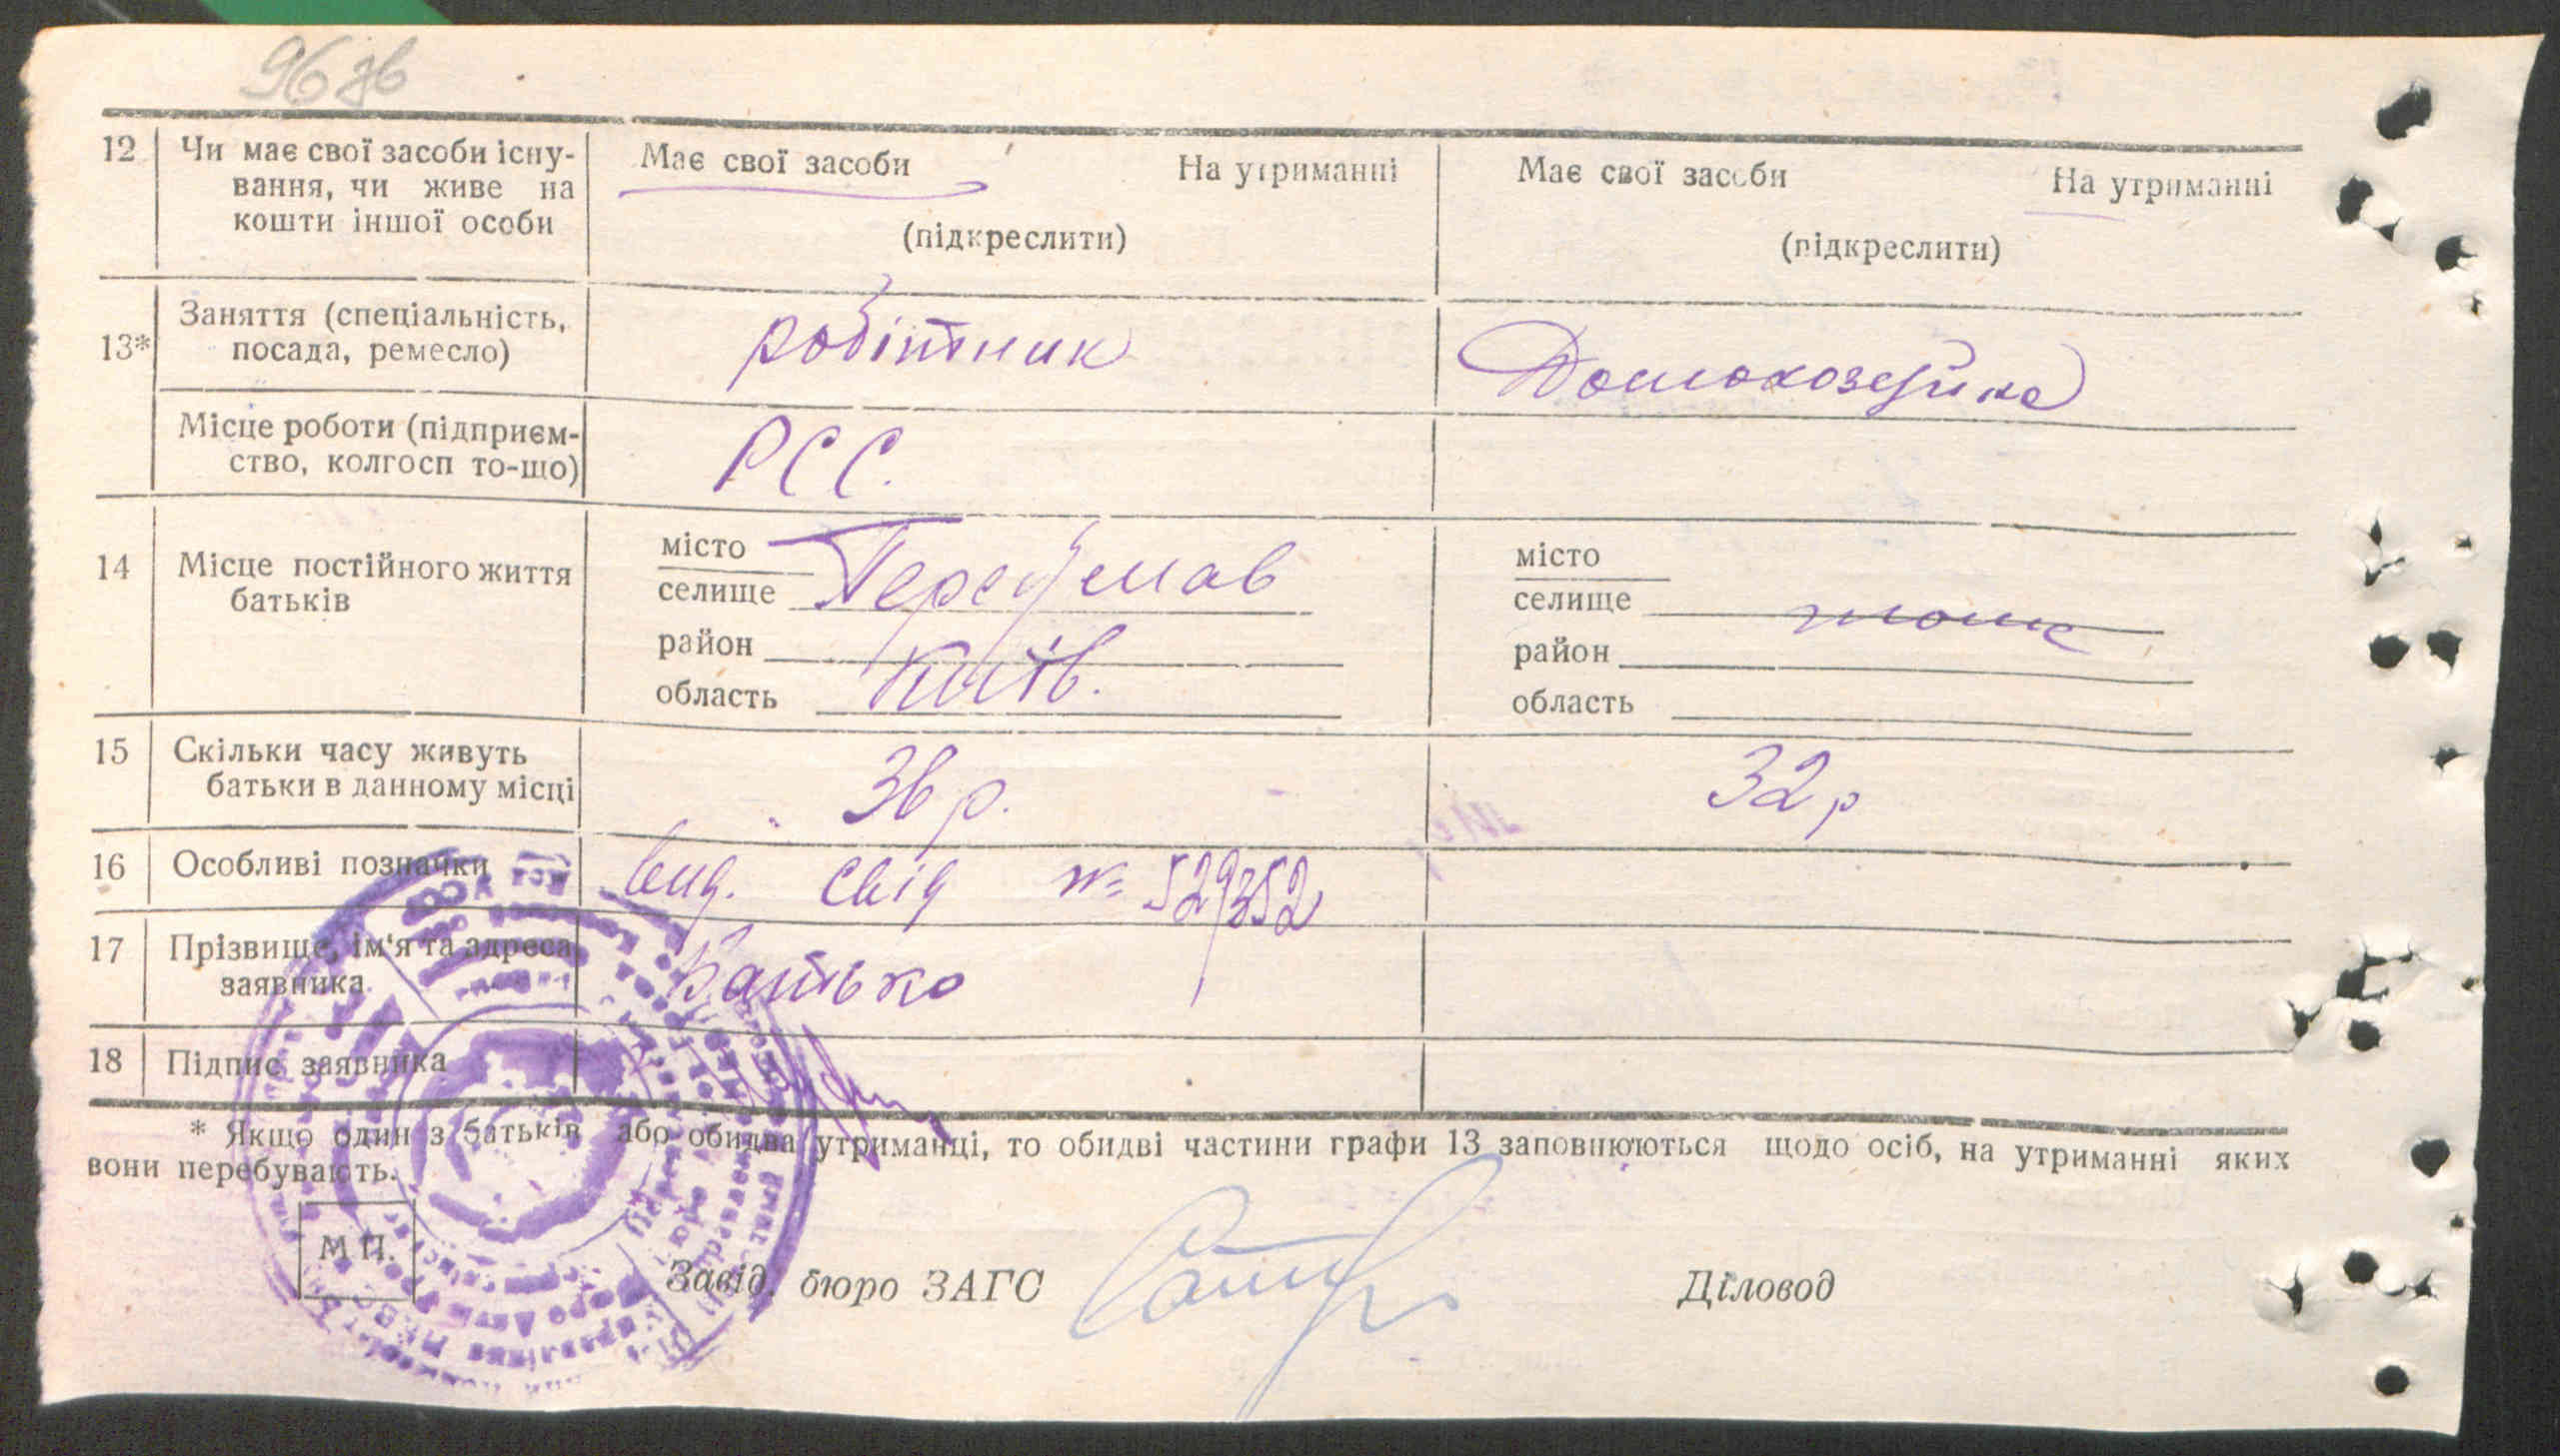 96 зв
12 Чи має свої засоби існу- Має свої засоби На утриманні Має свої засоби На утриманні
вання, чи живе на
кошти іншої особи (підкреслити) (підкреслити)
13* Заняття (спеціальність, робітник Домохозяйка
посада, ремесло)
Місце роботи (підприєм- РСС.
ство, колгосп то-що)
14 Місце постійного життя місто Переяслав місто
батьків селище селище тоже
район район
область Київ. область
15 Скільки часу живуть 36 р. 32 р
батьки в данному місці
16 Особливі позначки вид. свід № 529352
17 Прізвище, ім'я та адреса Батько
заявника
18 Підпис заявника
* Якщо один з батьків або обидва утриманці, то обидві частини графи 13 заповнюються щодо осіб, на утриманні яких
вони перебувають.
М П.
Завід. бюро ЗАГС Діловод